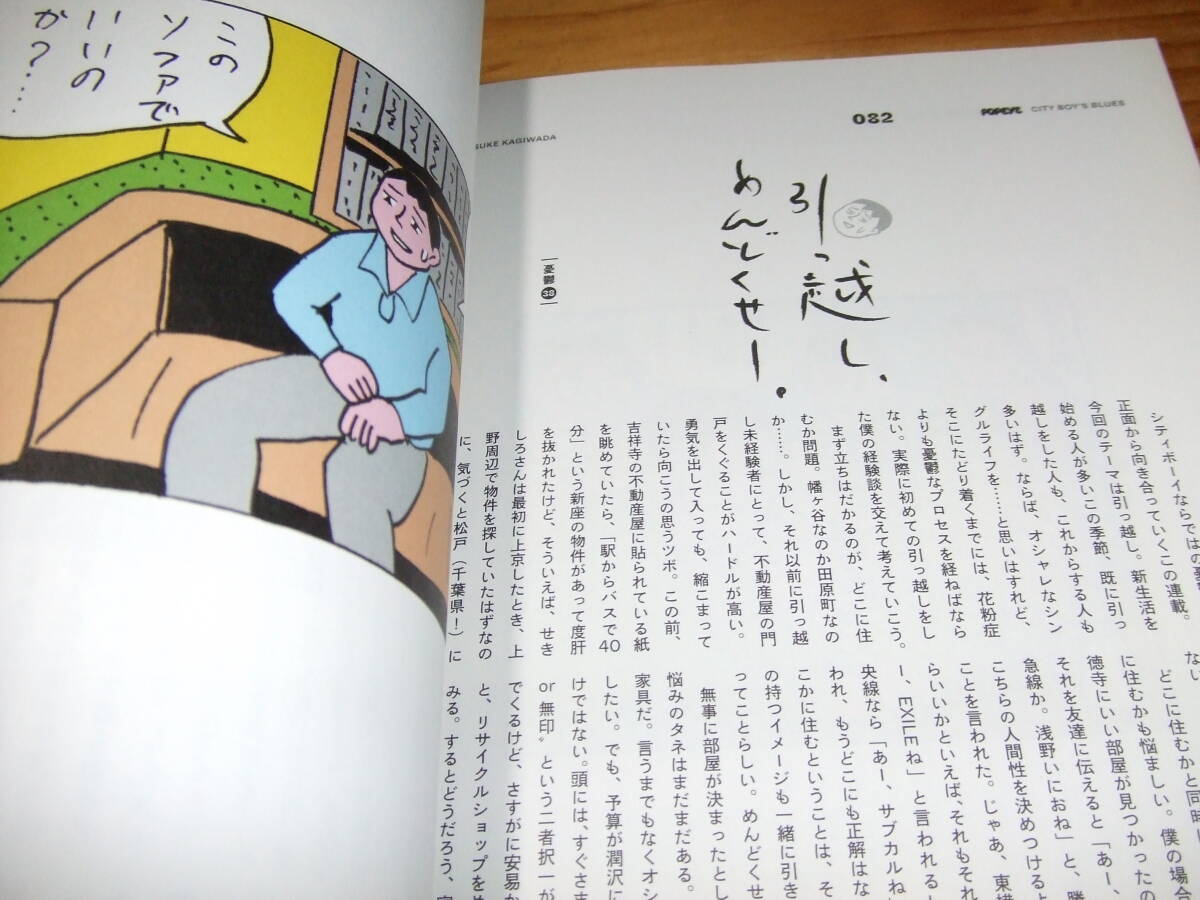 この
ソファで
いいの
か?…
SUKE KAGIWADA
082
POPEYE CITY BOY'S BLUES
引っ越し、
めんどくせー。
憂鬱38
シティボーイならではの憂
正面から向き合っていくこの連載。
今回のテーマは引っ越し。新生活を
始める人が多いこの季節、既に引っ
越しをした人も、これからする人も
多いはず。ならば、オシャレなシン
グルライフを……と思いはすれど、
そこにたどり着くまでには、花粉症
よりも憂鬱なプロセスを経ねばなら
ない。実際に初めての引っ越しをし
た僕の経験談を交えて考えていこう。
まず立ちはだかるのが、どこに住
むか問題。幡ヶ谷なのか田原町なの
か……。しかし、それ以前に引っ越
し未経験者にとって、不動産屋の門
戸をくぐることがハードルが高い。
勇気を出して入っても、縮こまって
いたら向こうの思うツボ。この前、
吉祥寺の不動産屋に貼られている紙
を眺めていたら、「駅からバスで40
分」という新座の物件があって度肝
を抜かれたけど、そういえば、せき
しろさんは最初に上京したとき、上
野周辺で物件を探していたはずなの
に、気づくと松戸(千葉県!)に
ない
どこに住むかと同時
に住むかも悩ましい。僕の場合
徳寺にいい部屋が見つかったの
それを友達に伝えると「あー、
急線か。浅野いにおね」と、勝
こちらの人間性を決めつけるよ
ことを言われた。じゃあ、東横
らいいかといえば、それもそれ
ー、EXILEね」と言われると
央線なら「あー、サブカルね」
われ、もうどこにも正解はな
こかに住むということは、そ
の持つイメージも一緒に引き
ってことらしい。めんどくせ
無事に部屋が決まったとし
悩みのタネはまだまだある。
家具だ。言うまでもなくオシ
したい。でも、予算が潤沢に
けではない。頭には、すぐさま
or 無印〟という二者択一が
でくるけど、さすがに安易か
と、リサイクルショップをめ
みる。するとどうだろう、